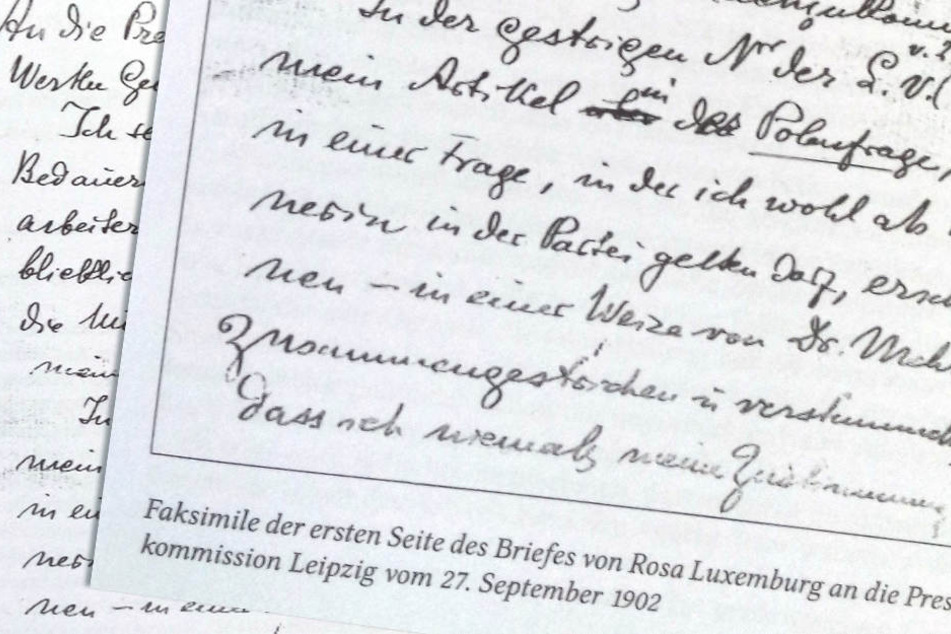 An die Pre
Werten Ge
Ich se
Bedauer
arbeiter
die
mein
In
mein
in ei
neri
nen – in eine
In der gestrigen Nr der L. V.
mein Artikel in der Polenfrage,
in einer Frage, in der ich wohl als
nerin in der Partei gelten darf, ersc
nen – in einer Weise von Dr. Meh
zusammengestrichen u verstümmel
dass ich niemals meine Zustimmun
Faksimile der ersten Seite des Briefes von Rosa Luxemburg an die Pres
kommission Leipzig vom 27. September 1902